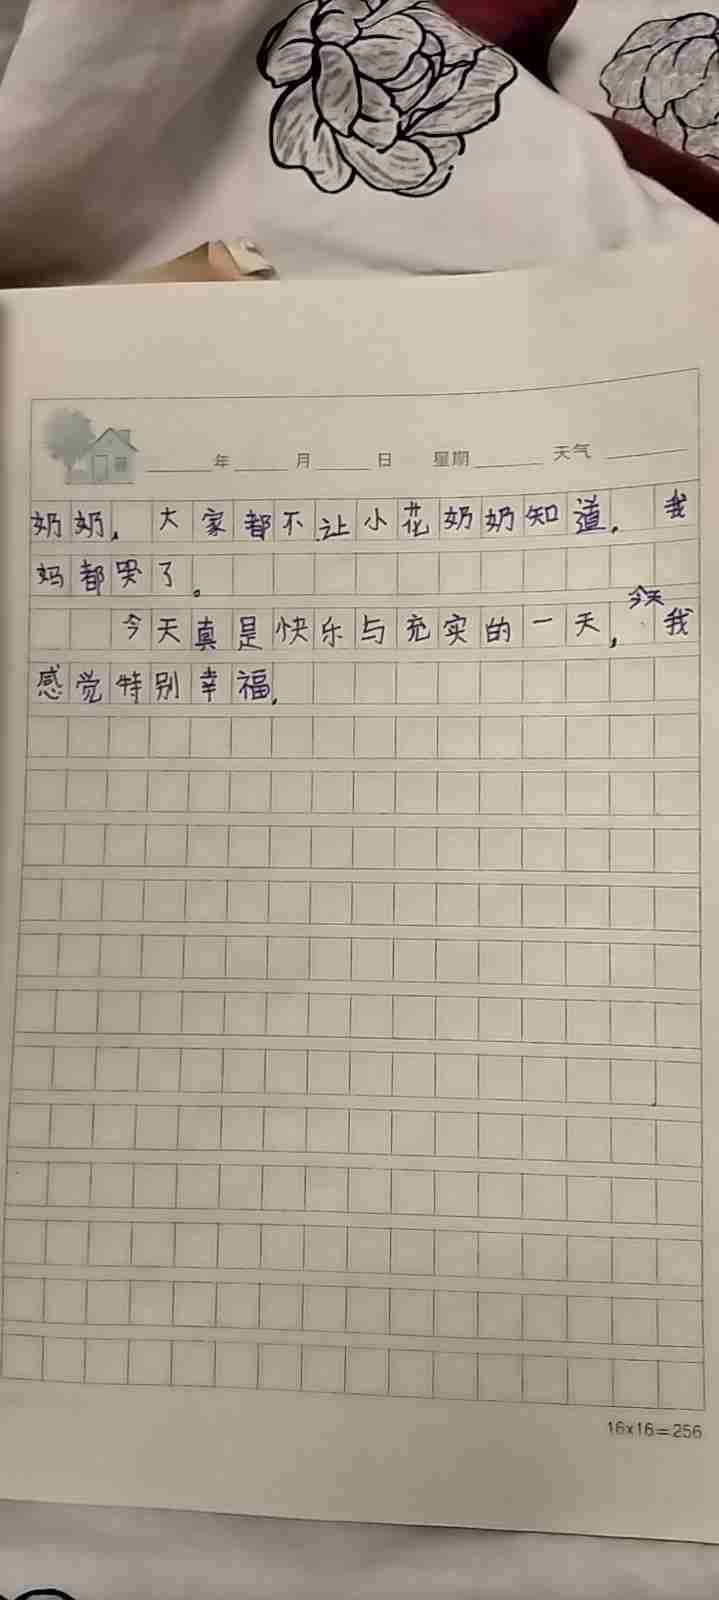 年 月 日 星期 天气
奶奶，大家都不让小花奶奶知道，我
妈都哭了。
今天真是快乐与充实的一天，今天我
感觉特别幸福，
16x16=256